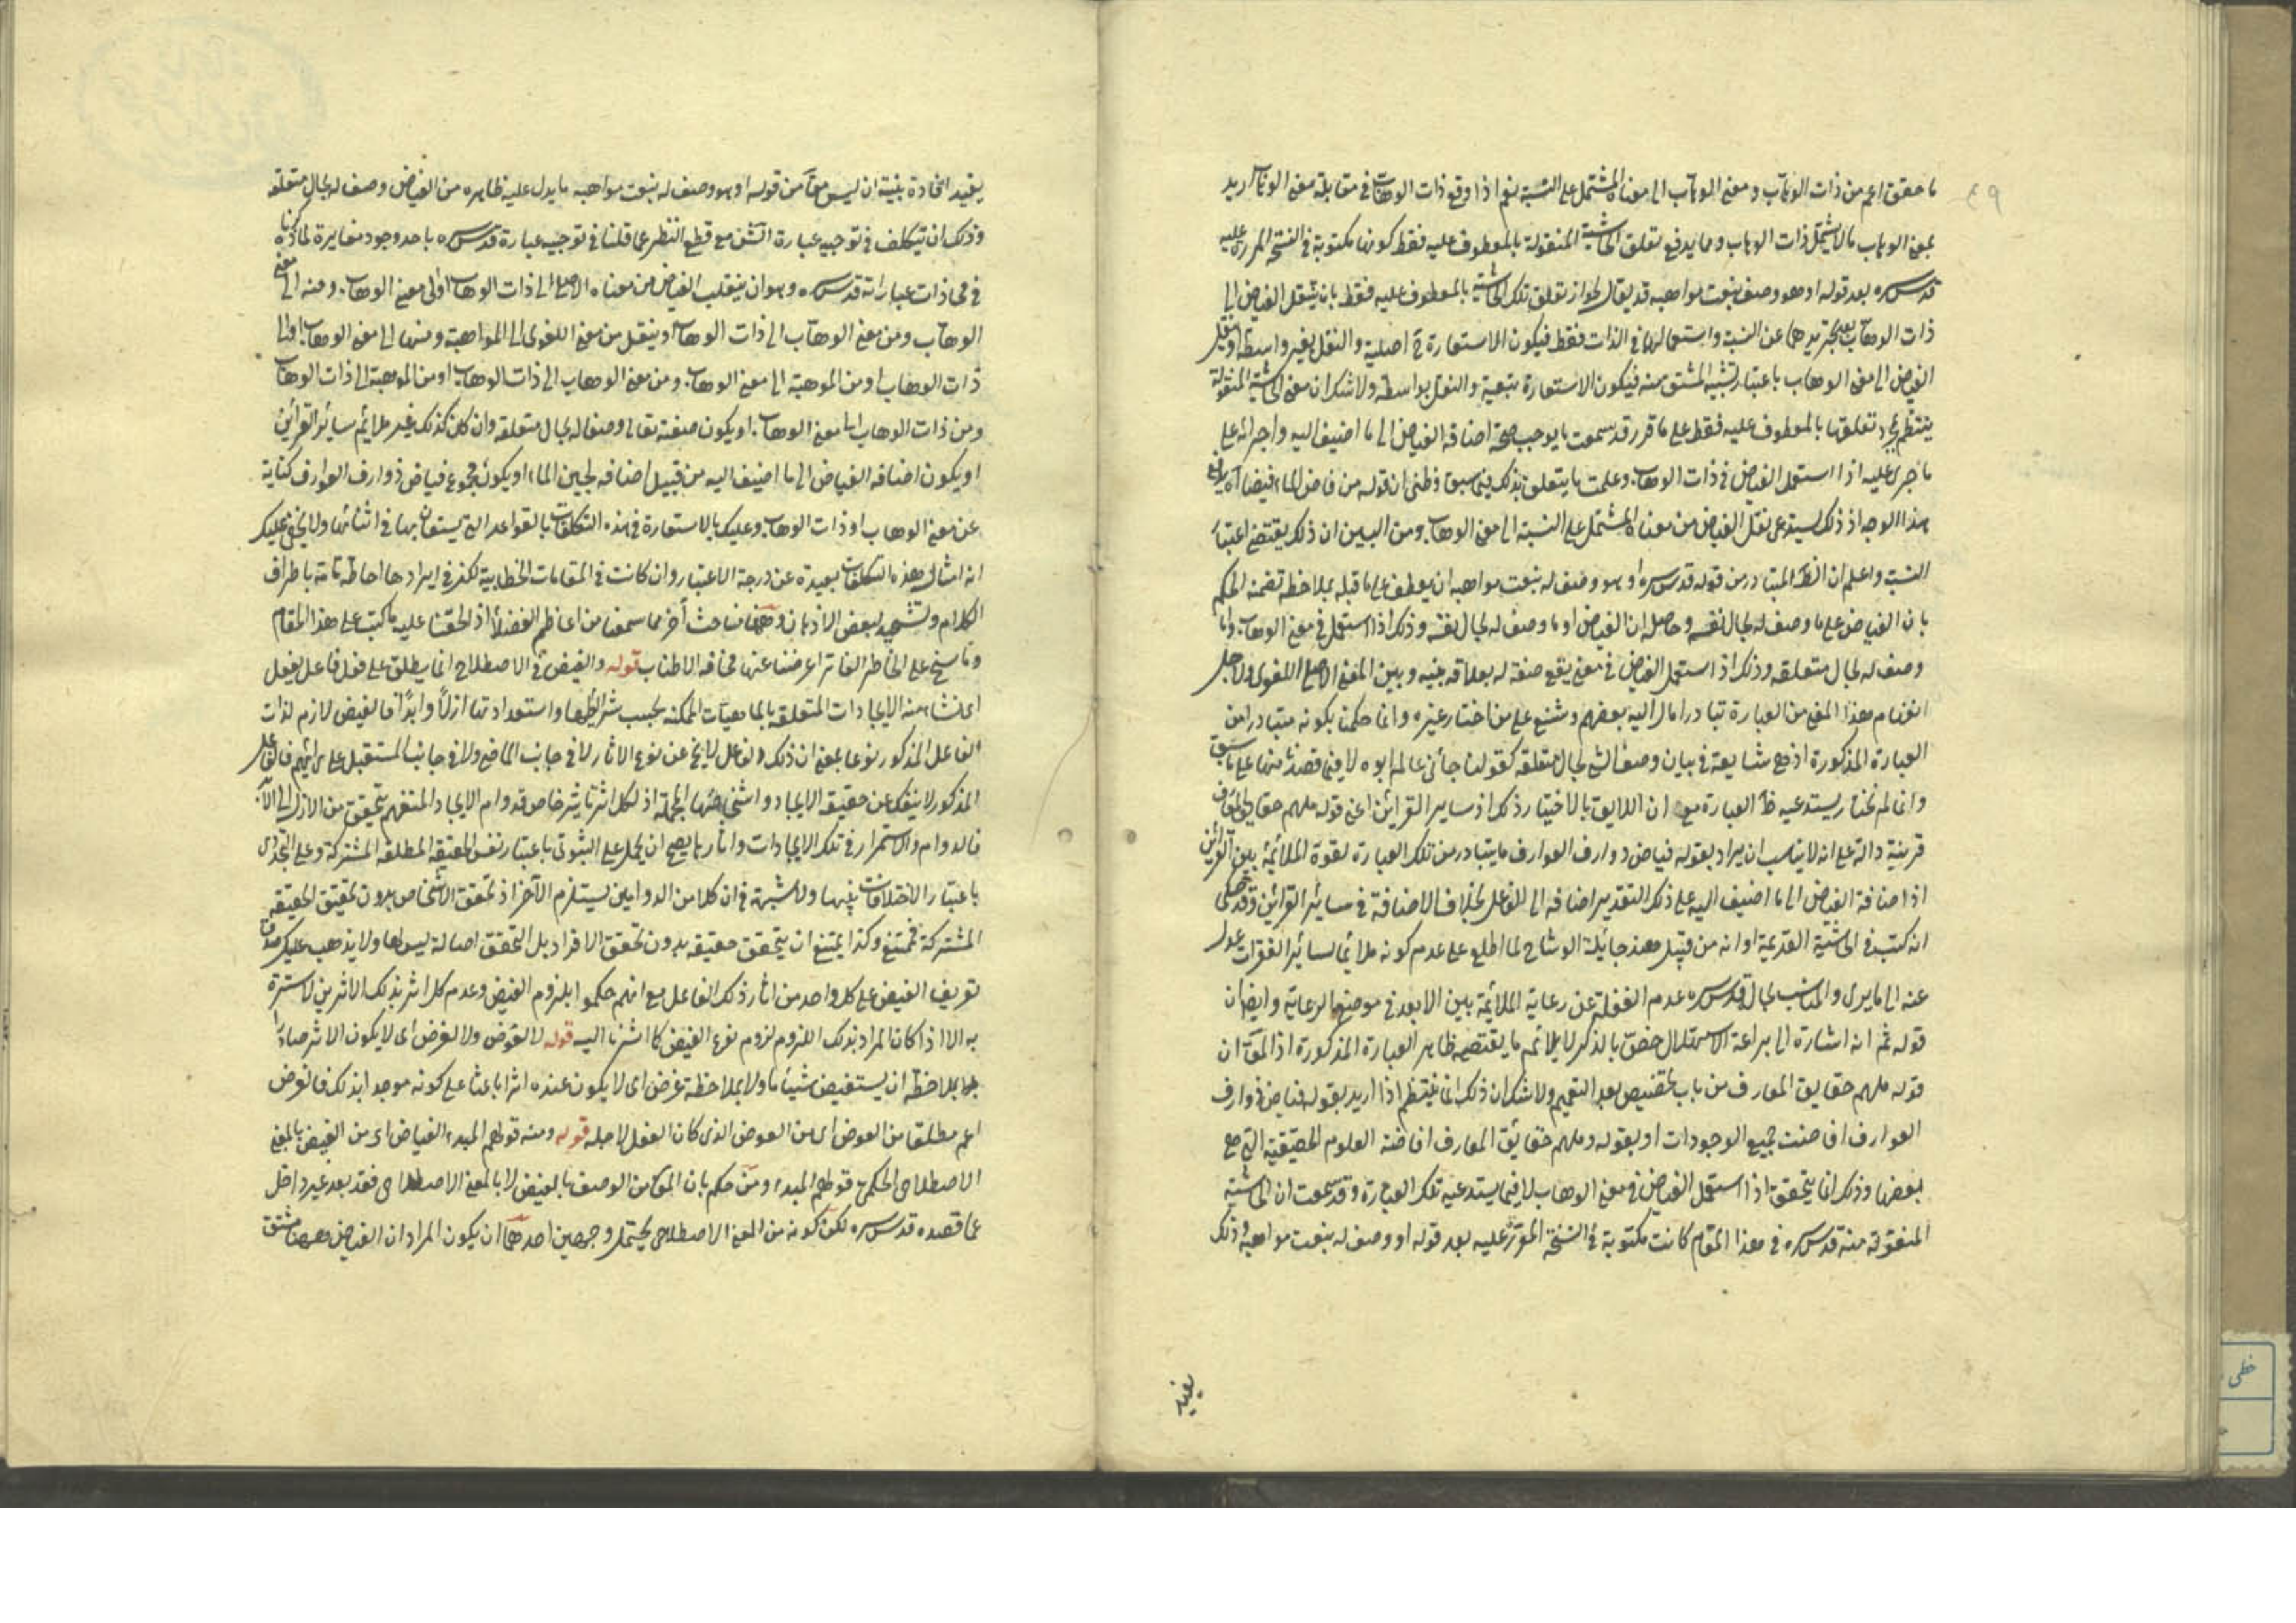 ٤٩
ما حقق اعم من ذات الوهاب ومعنى الوهاب الى معناه المشتمل على النسبة نعم اذا وقع ذات الوهاب في مقابلة معنى الوهاب اريد
بمعنى الوهاب ما لا يشتمل ذات الوهاب ومما يدفع تعلق الحاشية المنقولة بالمعطوف عليه فقط كونها مكتوبة في النسخة المقررة عليه
قدس سره بعد قوله او هو وصف بنعت مواهبه قد يقال لجواز تعلق تلك الحاشية بالمعطوف عليه فقط بان ينتقل الفياض الى
ذات الوهاب بعد تجريدهما عن النسبة واستعمالهما في الذات فقط فيكون الاستعارة ح اصلية والنقل بغير واسطة او ينقل
الفياض الى معنى الوهاب باعتبار تشبيه المشتق منه فيكون الاستعارة تبعية والنقل بواسطة ولا شك ان معنى الحاشية المنقولة
ينتظم بمجرد تعلقها بالمعطوف عليه فقط على ما قرر قد سمعت ما يوجب صحة اضافة الفياض الى ما اضيف اليه واجرائه على
ما جرى عليه اذا استعمل الفياض في ذات الوهاب وعلمت ما يتعلق بذلك فيما سبق وظني ان قوله من فاض الماء فيضا آه
هذا الوجه اذ ذلك يستدعي نقل الفياض من معناه المشتمل على النسبة الى معنى الوهاب ومن البين ان ذلك يقتضي اعتبار
النسبة واعلم ان الظ المتبادر من قوله قدس سره او هو وصف له بنعت مواهبه ان يعطف على ما قبله بملاحظة تضمنه الحكم
بان الفياض على ما وصف له بحال نفسه وحاصله ان الفياض اوما وصف له بحال نفسه وذلك اذا استعمل في معنى الوهاب واما
وصف له بحال متعلقه وذلك اذ استعمل الفياض في معنى يقع صفة له بعلاقة بينه وبين المعنى الاصلي اللغوي ولاجل
انفهام هذا المعنى من العبارة تبادرا مال اليه بعضهم وشنع على من اختار غيره وانما حكمنا بكونه متبادرا من
العبارة المذكورة اذ هي شايعة في بيان وصف الشيء بحال متعلقه كقولنا جائني عالم ابوه لا فيما قصد منها على ما سبق
وانما لم نختار يستدعيه ظ العبارة مع ان اللايق بالاختيار ذلك اذ ساير القرائن اعني قوله ملهم حقايق المعارف
قرينة دالة على انه لا يناسب ان يراد بقوله فياض ذوارف العوارف ما يتبادر من تلك العبارة لقوة الملائمة بين القرائن
اذ اضافة الفياض الى ما اضيف اليه على ذلك التقدير اضافة الى الفاعل بخلاف الاضافة في سائر القرائن وقد حكي
انه كتب في الحاشية القديمة او انه من قبيل هند جائلة الوشاح لما اطلع على عدم كونه ملائما لسائر الفقرات عدل
عنه الى ما يرى والمناسب بحاله قدس سره عدم الغفلة عن رعاية الملائمة بين الابعد في موضعها لرعاية وايضا ان
قوله ثم انه اشارة الى براعة الاستهلال حقق بالذكر لا يلائم ما يقتضيه ظاهر العبارة المذكورة اذ المعنى ان
قوله ملهم حقايق المعارف من باب تخصيص بعد التعميم ولا شك ان ذلك انما ينتظم اذا اريد بقوله فياض ذوارف
العوارف افاضت جميع الوجودات او بقوله وملهم حقايق المعارف افاضة العلوم الحقيقية التي هي
بعضها وذلك انما يتحقق اذا استعمل الفياض في معنى الوهاب لا فيما يستدعيه تلك العبارة وقد سمعت ان الحاشية
المنقولة منه قدس سره في هذا المقام كانت مكتوبة في النسخة المقررة عليه بعد قوله او وصف له بنعت مواهبه وذلك
يفيد
يفيد افادة بينة ان ليس معنى من قوله او هو وصف له بنعت مواهبه ما يدل عليه ظاهره من الفياض وصف له بحال متعلقه
وذلك ان تتكلف في توجيه عبارة المتن مع قطع النظر عما قلنا في توجيه عبارة قدس سره باحد وجوه مغايرة لما ذكرنا
في محاذات عباراته قدس سره وهو ان ينقلب الفياض من معناه الاصلي الى ذات الوهاب او الى معنى الوهاب ومنه الى معنى
الوهاب ومن معنى الوهاب الى ذات الوهاب او ينقل من معنى اللغوي الى المواهبة ومنها الى معنى الوهاب او الى
ذات الوهاب او من الموهبة الى معنى الوهاب ومن معنى الوهاب الى ذات الوهاب او من الموهبة الى ذات الوهاب
ومن ذات الوهاب الى معنى الوهاب او يكون صفته تعالى وصفا له بحال متعلقه وان كان كذلك غير ملايم سائر القرائن
او يكون اضافة الفياض الى ما اضيف اليه من قبيل اضافة لجين الماء او يكون مجموع فياض ذوارف العوارف كناية
عن معنى الوهاب او ذات الوهاب وعليك بالاستعارة في هذه التكلفات بالقواعد التي يستعان بها في اثنائها ولا يخفى عليك
انه امثال هذه التكلفات بعيدة عن درجة الاعتبار وان كانت في المقامات الخطابية لكن في ايرادها احاطة تامة باطراف
الكلام وتشحيذ لبعض الاذهان وههنا مباحث أخر مما سمعنا من اعاظم الفضلا اذ لحقنا عليه ما كتب على هذا المقام
وما سنح على الخاطر الفاتر اعرضنا عنها مخافة الاطناب قوله والفيض في الاصطلاح انما يطلق على فعل فاعل يفعل
اي منشاء منه الايجادات المتعلقة بالماهيات الممكنة بحسب شرائطها واستعداداتها ازلا وابدا فالفيض لازم لذات
الفاعل المذكور نوعا بمعنى ان ذلك الفاعل لا يخ عن نوع الاثار لا في جانب الماضي ولا في جانب المستقبل على رائهم فالفاعل
المذكور لا ينفك عن حقيقة الايجاد واشخاصها بالجملة اذ لكل اثر تاثير خاص فدوام الايجاد المتفهم يتحقق من الازل الى الابد
فالدوام والاستمرار في تلك الايجادات واثارها يصح ان يحمل على الثبوتي باعتبار نفس الحقيقة المطلقة المشتركة وعلى التجددي
باعتبار الاختلافات بينها ولا شبهة في ان كلا من الدوامين يستلزم الآخر اذ تحقق الاشخاص بدون تحقيق الحقيقة
المشتركة ممتنع وكذا يمتنع ان يتحقق حقيقة بدون تحقق الافراد بل التحقق اصالة ليس لها ولا يذهب عليك صدق
تعريف الفيض على كل واحد من اثار ذلك الفاعل مع انهم حكموا بلزوم الفيض وعدم كل اثر بذلك الاثرين لا سترة
به الا اذا كان المراد بذلك اللزوم لزوم نوع الفيض كما اشرنا اليه قوله لا لعوض ولا لغرض اي لا يكون الاثر صادرا
بملاحظة ان يستفيض شيئا ما ولا بملاحظة غرض اي لا يكون عنده اثرا باعثا على كونه موجدا بذلك فالغرض
اعم مطلقا من العوض اي من العوض الذي كان الفعل لاجله قوله ومنه قولهم المبدء الفياض اي من الفيض بالمعنى
الاصطلاحي الحكمي قولهم المبدء ومن حكم بان المعنى من الوصف بالفيض لا بالمعنى الاصطلاحي فقد بعد غير داخل
عما قصده قدس سره لكن كونه من المعنى الاصطلاحي يحتمل وجهين احدهما ان يكون المراد ان الفياض ههنا مشتق
خطى